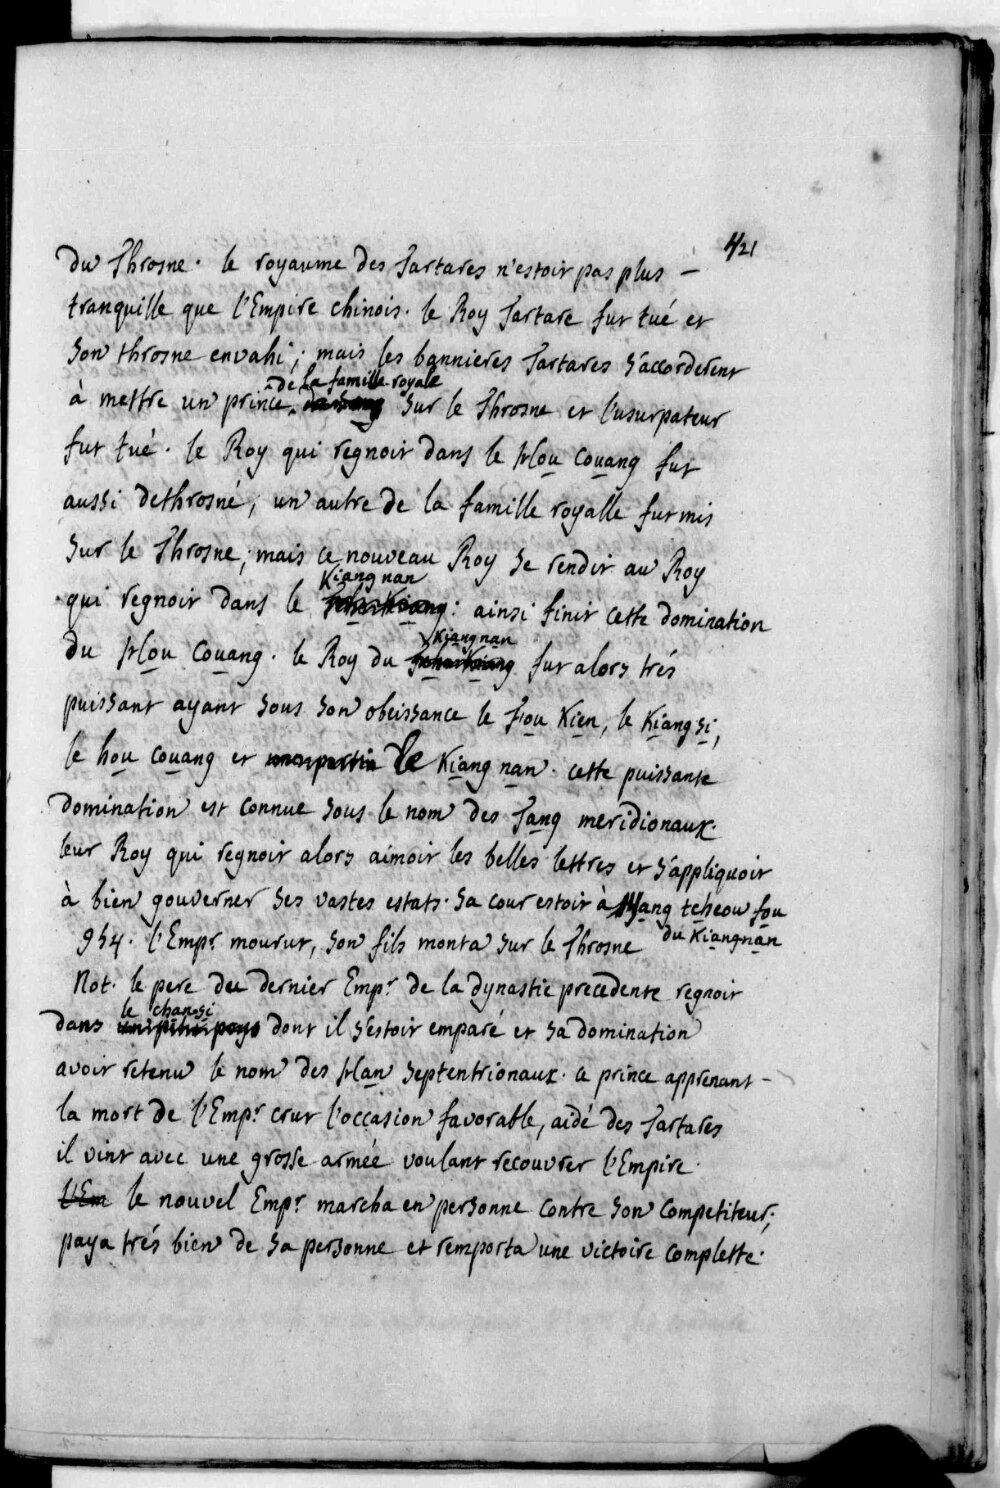 421
du Throsne. le royaume des Tartares n'estoit pas plus –
tranquille que l'Empire chinois. le Roy Tartare fut tué et
son throsne envahi; mais les bannieres Tartares s'accorderent
de la famille royale
à mettre un prince sur le Throsne et l'usurpateur
fut tué. le Roy qui regnoit dans le Hou Couang fut
aussi dethrosné; un autre de la famille royalle fut mis
sur le Throsne; mais ce nouveau Roy se rendit au Roy
Kiang nan
qui regnoit dans le : ainsi finit cette domination
Kiangnan
du Hou Couang. le Roy du fut alors trés
puissant ayant sous son obeissance le Fou Kien, le Kiang si,
le hou Couang et le Kiang nan. cette puissante
domination est connue sous le nom des Tang meridionaux.
leur Roy qui regnoit alors aimoit les belles lettres et s'appliquoit
à bien gouverner ses vastes estats. sa cour estoit à Yang tcheou fou
du Kiangnan
954. l'Empr. mourut, son fils monta sur le Throsne
Not. le pere du dernier Empr. de la dynastie precedente regnoit
le chansi
dans dont il s'estoit emparé et sa domination
avoit retenu le nom des Han septentrionaux. ce prince apprenant –
la mort de l'Empr. crut l'occasion favorable, aidé des Tartares
il vint avec une grosse armée voulant recouvrer l'Empire.
l'Em le nouvel Empr. marcha en personne contre son Competiteur;
paya trés bien de sa personne et remporta une victoire complette.